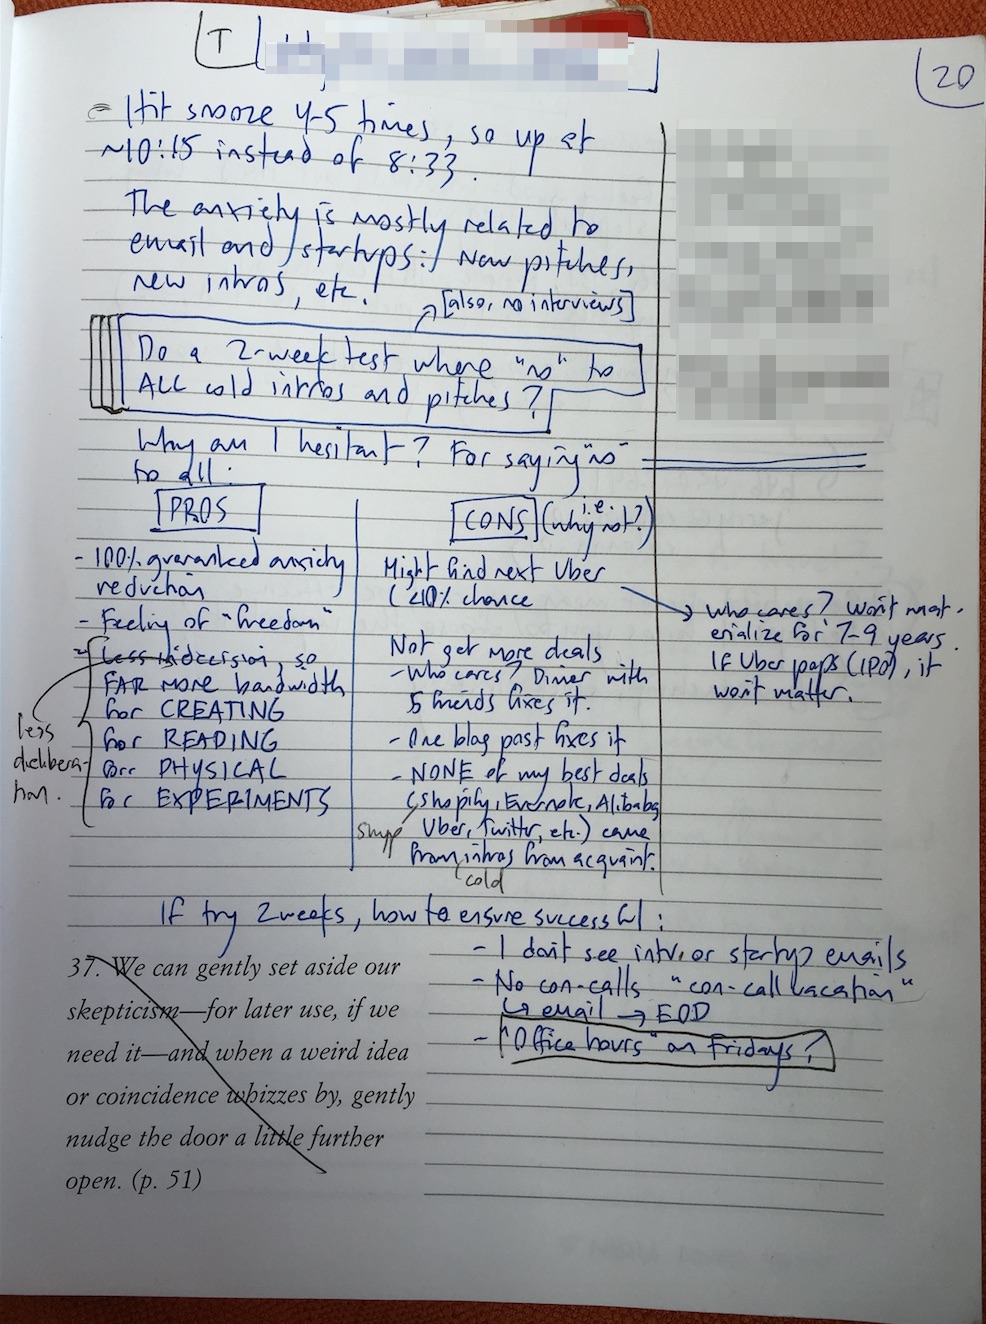 T
20
- Hit snooze 4-5 times, so up at
~10:15 instead of 8:33.
The anxiety is mostly related to
email and startups: New pitches,
new intros, etc.
[also, no interviews]
Do a 2-week test where "no" to
ALL cold intros and pitches?
Why am I hesitant? For saying "no"
to all:
PROS
- 100% guaranteed anxiety
reduction
- Feeling of "freedom"
- Less indecision, so
less
delibera-
tion.
FAR MORE bandwidth
for CREATING
for READING
for PHYSICAL
for EXPERIMENTS
CONS (i.e. why not?)
Might find next Uber
(<10% chance
who cares? Won't mat-
erialize for 7-9 years.
If Uber pops (IPO), it
won't matter.
Not get more deals
- Who cares? Dinner with
5 friends fixes it.
- One blog post fixes it
- NONE of my best deals
(Shopify, Evernote, Alibaba,
Uber, Twitter, etc.) came
from cold intros from acquaint.
If try 2 weeks, how to ensure successful:
- I don't see intv. or startup emails
- No con-calls "con-call vacation"
↳ email → EOD
- "Office hours" on Fridays?
37. We can gently set aside our
skepticism—for later use, if we
need it—and when a weird idea
or coincidence whizzes by, gently
nudge the door a little further
open. (p. 51)